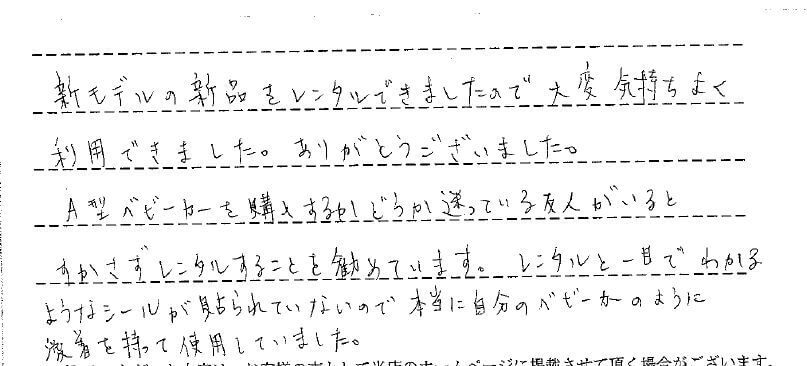 新モデルの新品をレンタルできましたので大変気持ちよく
利用できました。ありがとうございました。
A型ベビーカーを購入するかどうか迷っている友人がいると
すかさずレンタルすることを勧めています。レンタルと一目でわかる
ようなシールが貼られていないので本当に自分のベビーカーのように
愛着を持って使用していました。